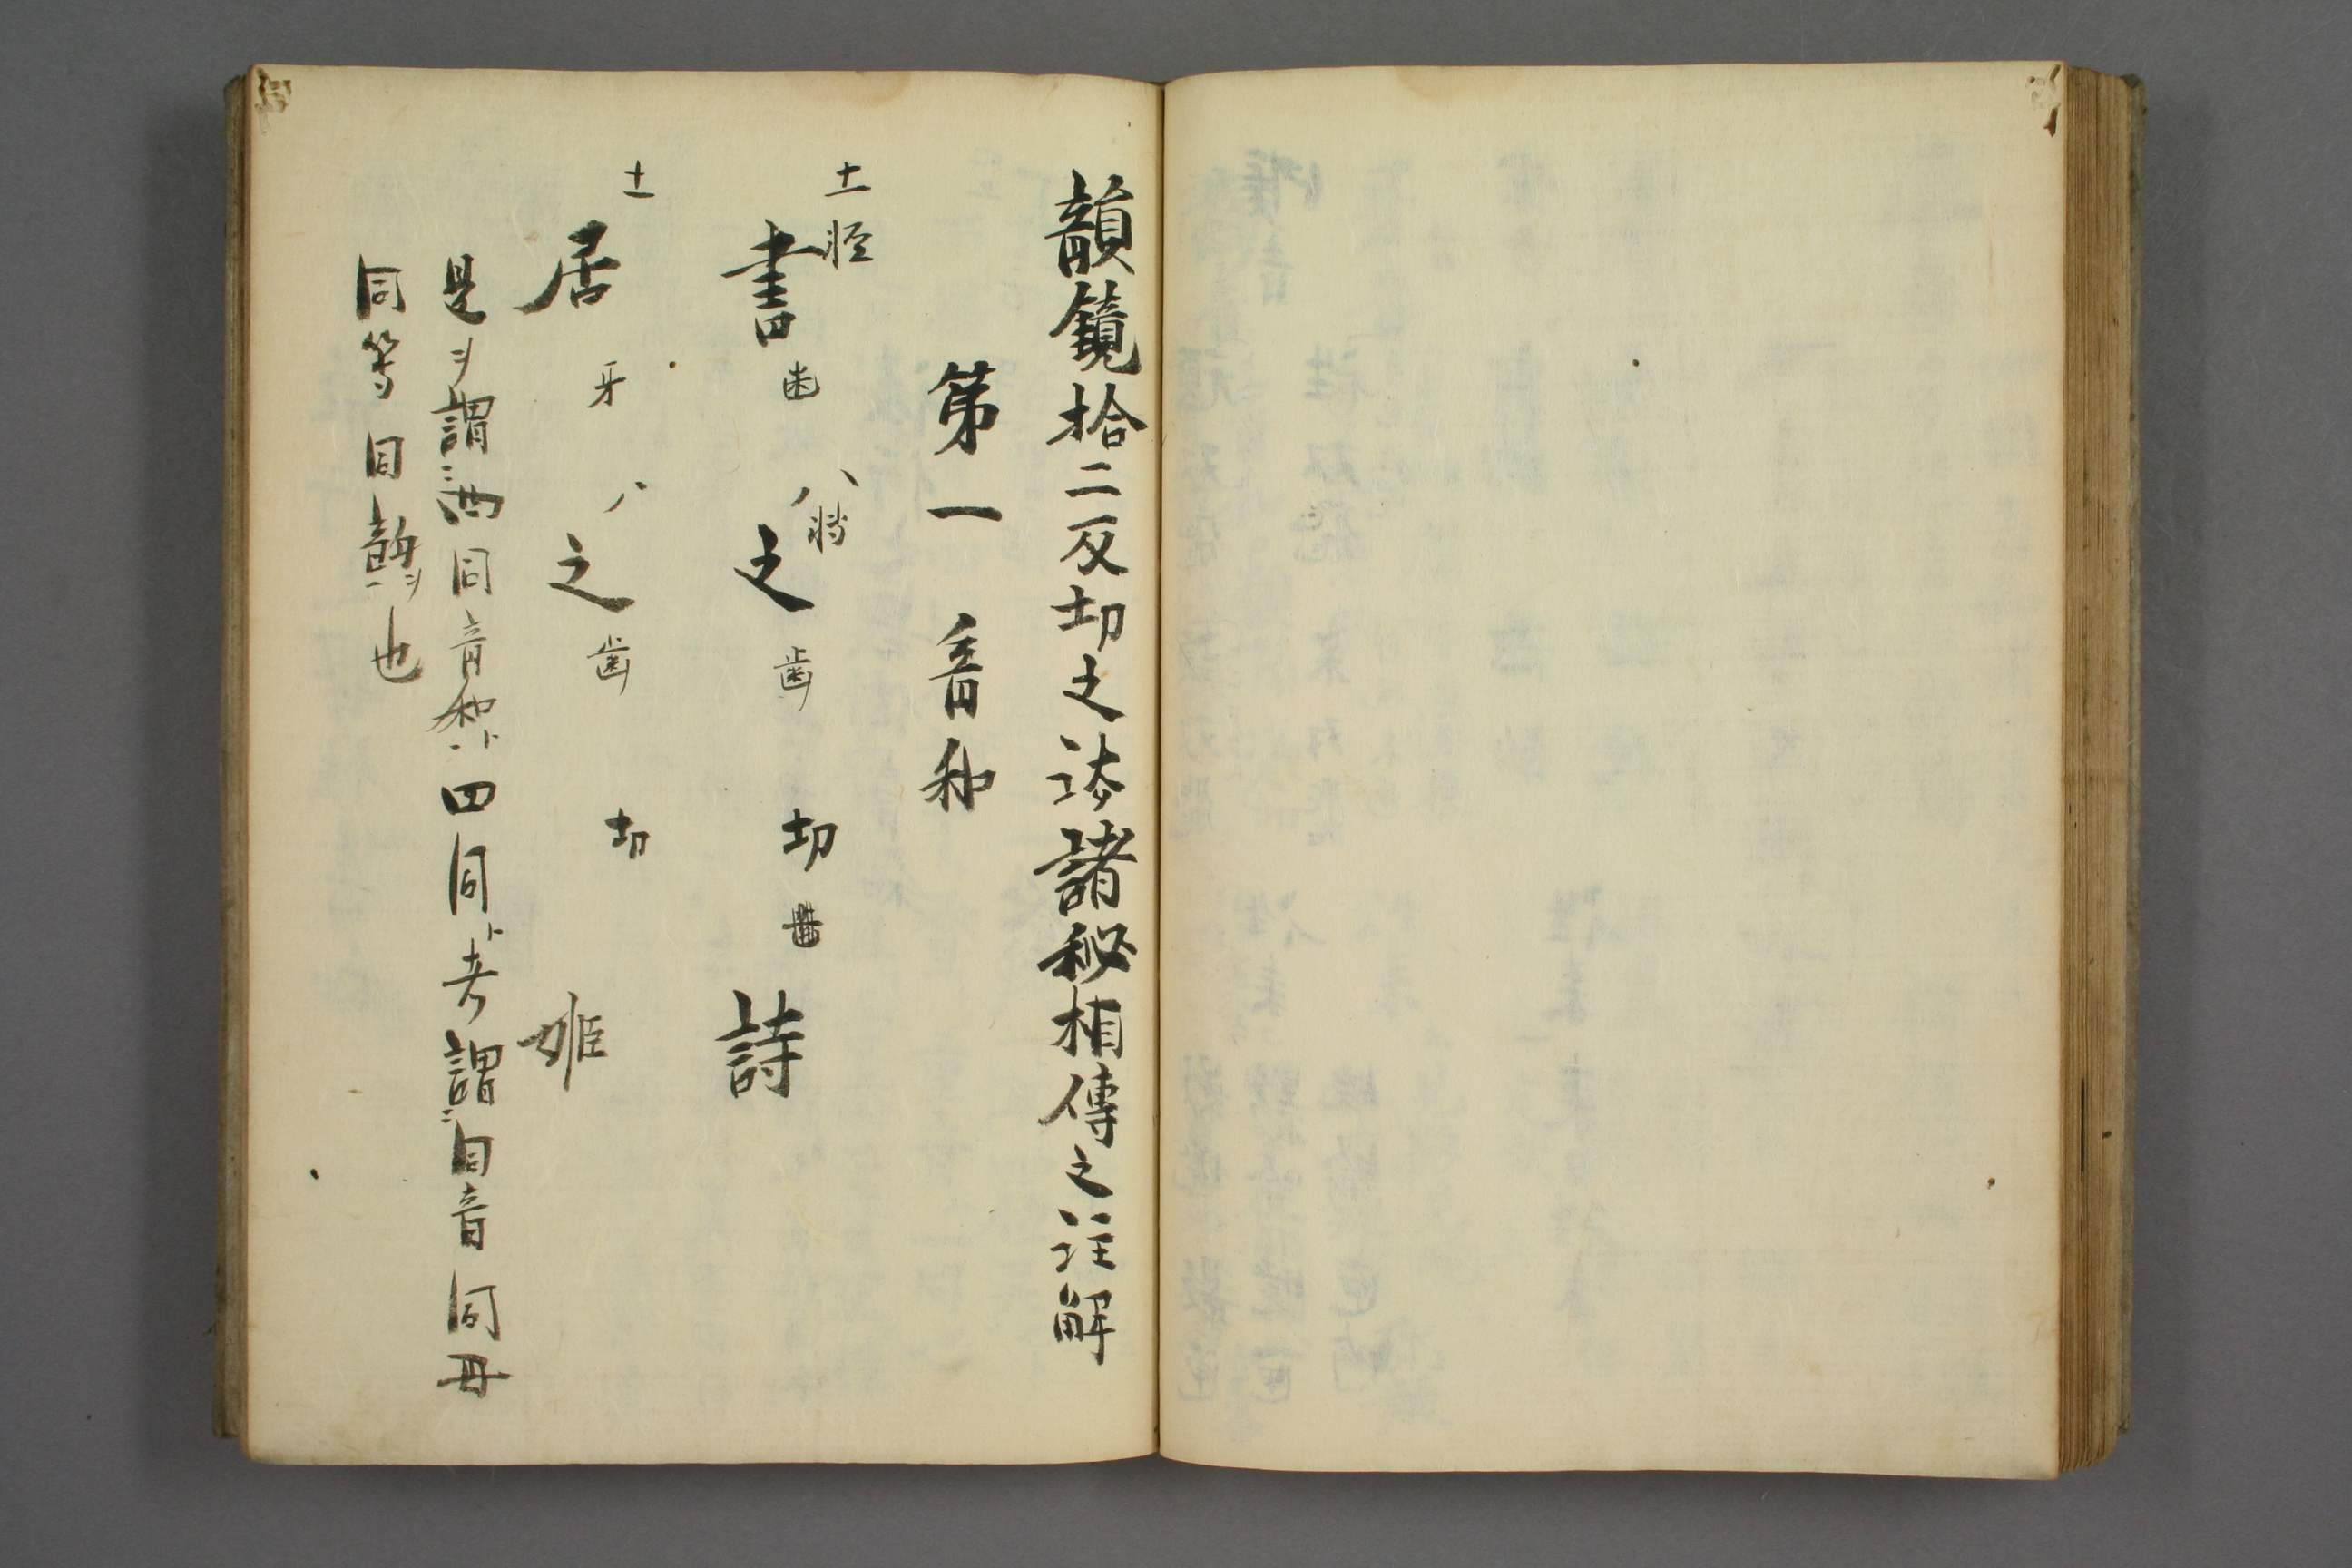 韻鏡拾二反切之法諸秘相傳之注解
第一 音和
十一 書 歯 八 之 歯 切 詩
十一 居 牙 八 之 歯 切 姫
是ヲ謂ニ洒同音和ト四同ト者謂ニ同音同母
同等同韻ヲ也